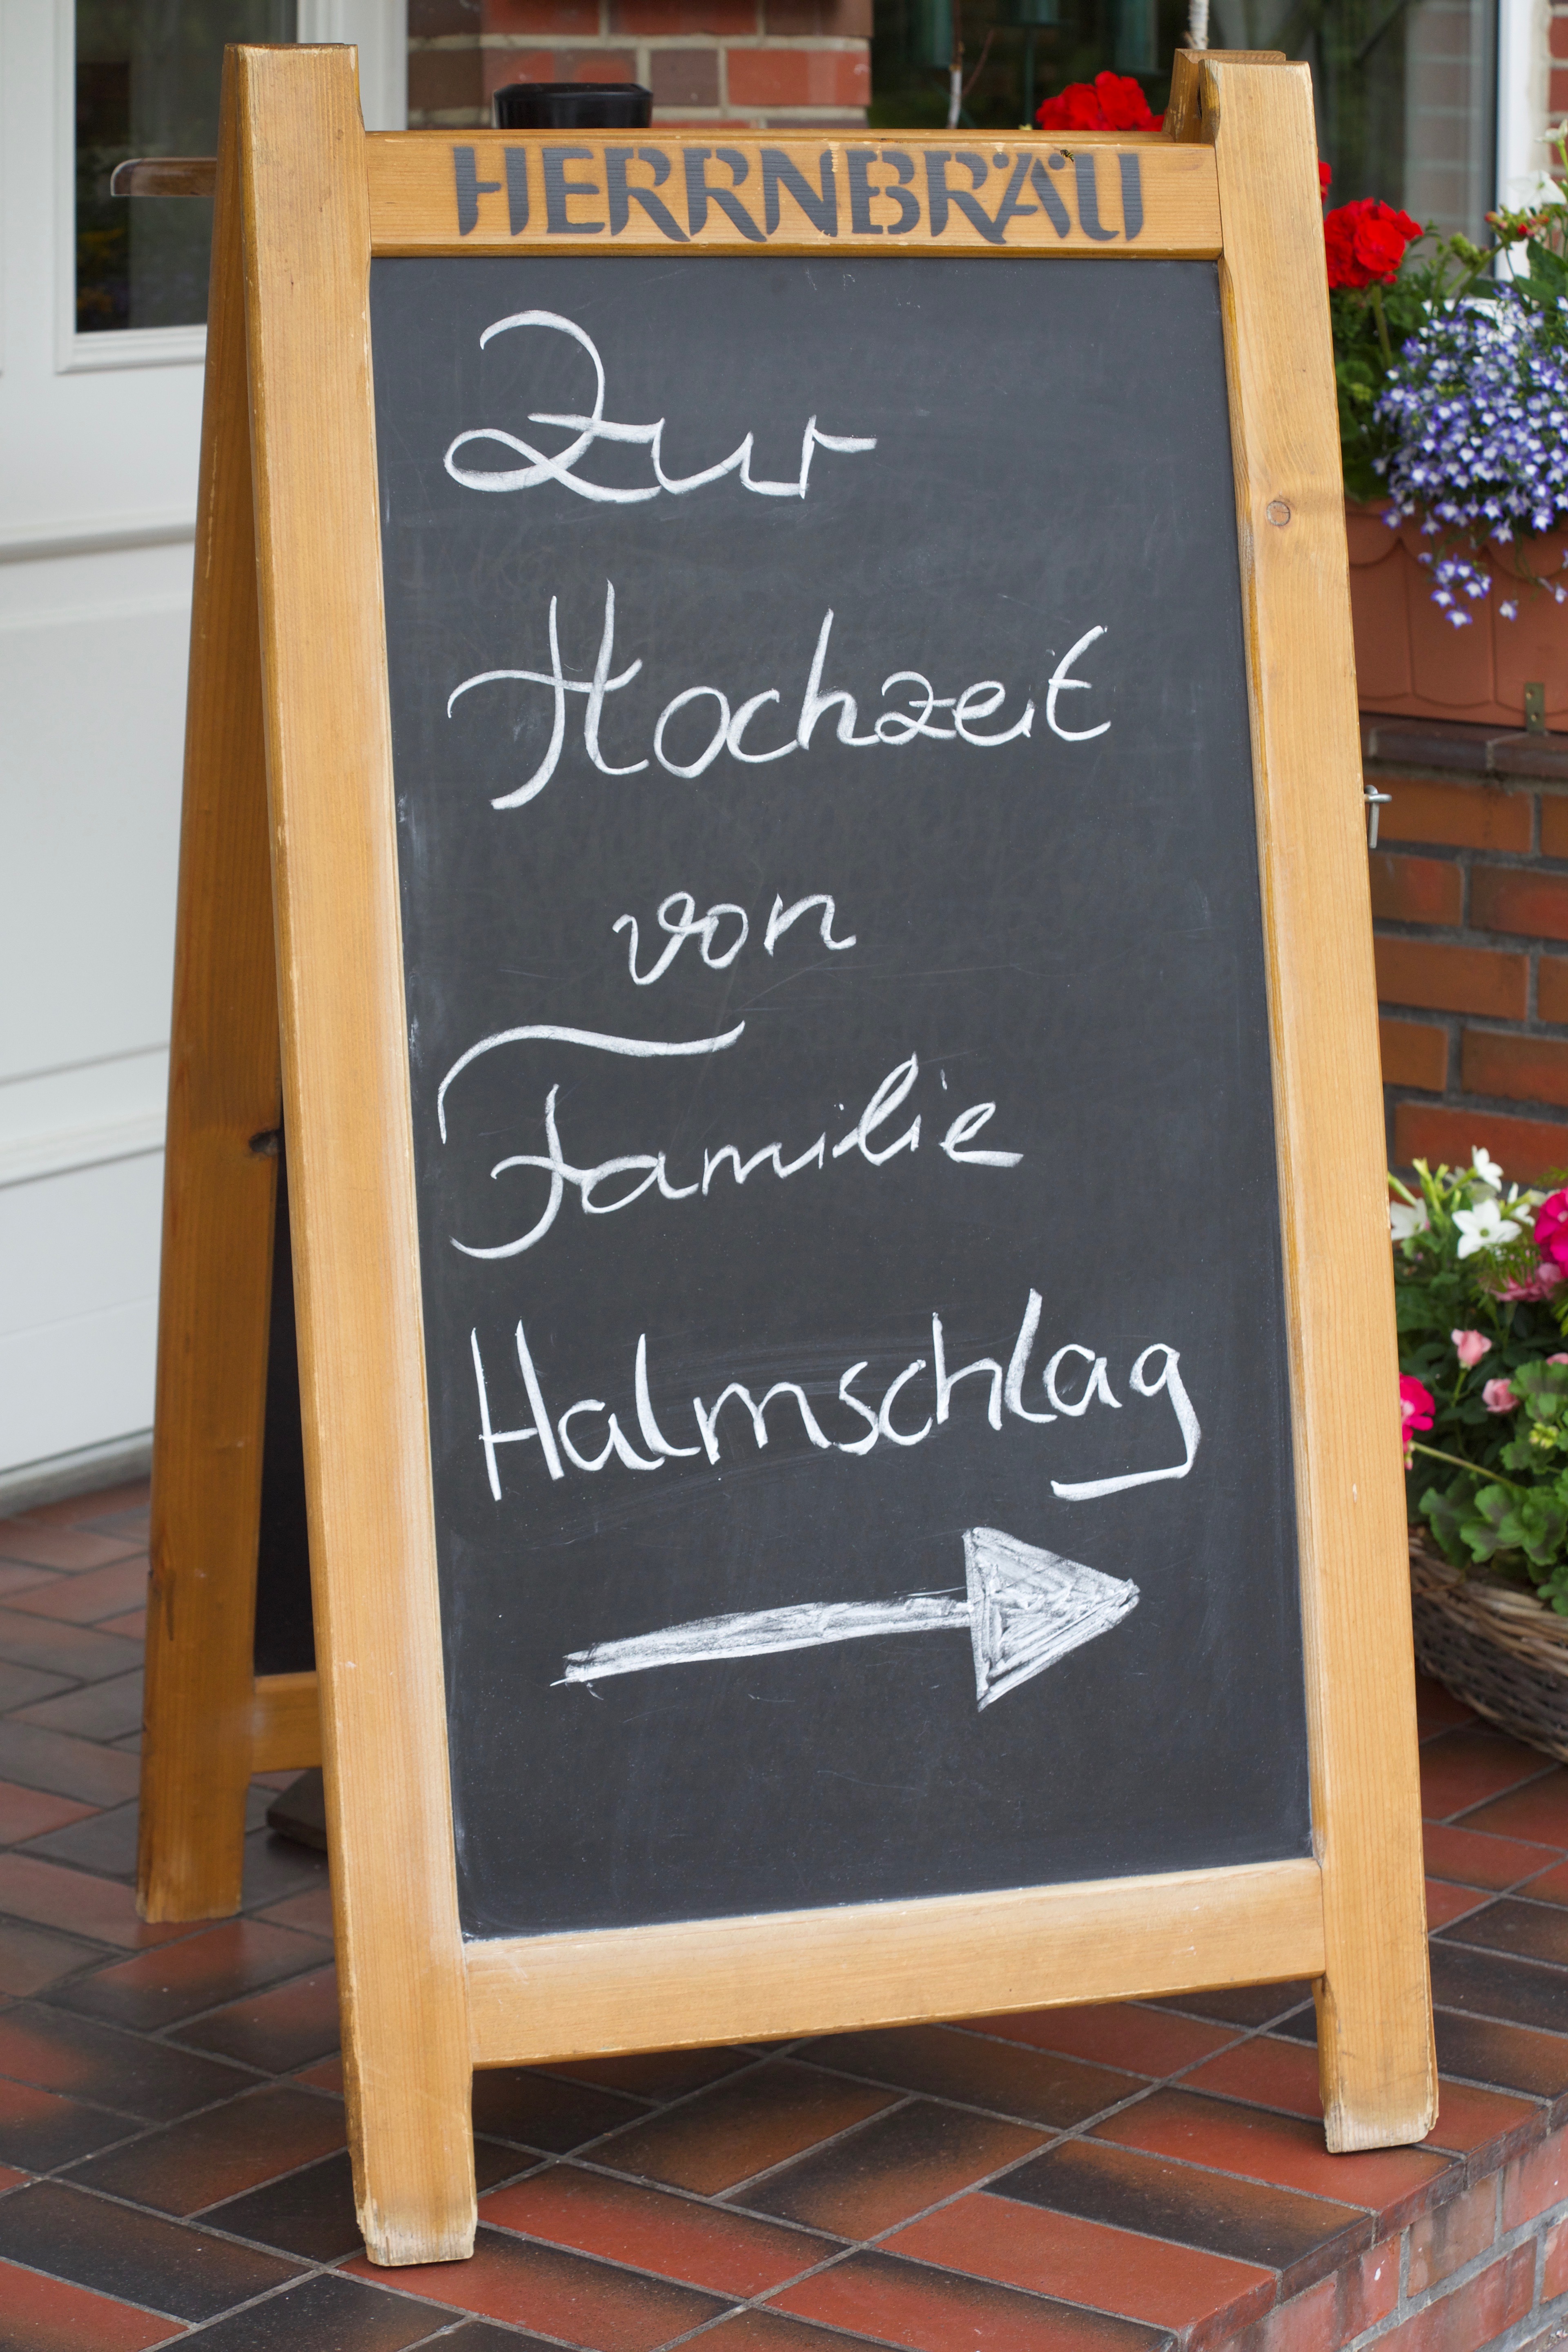 HERRNBRÄU
Zur
Hochzeit
von
Familie
Halmschlag